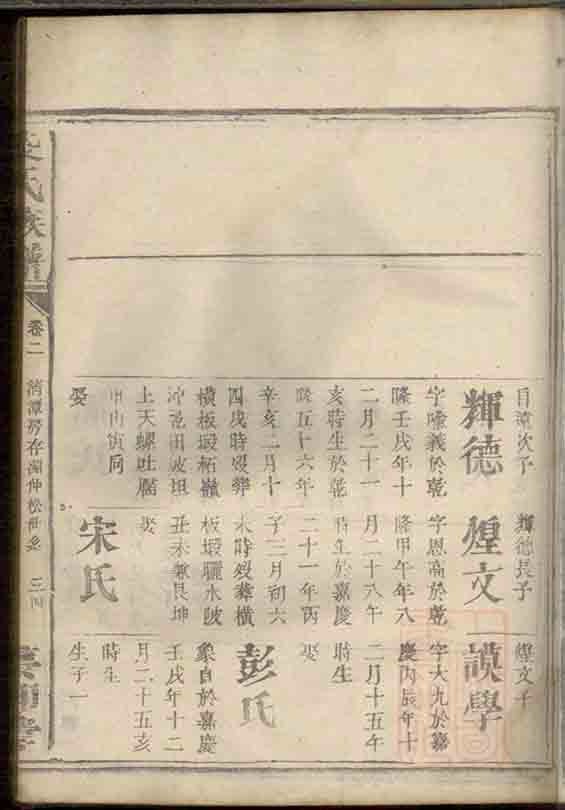 目滾次子
輝德
字隆義於乾
隆壬戌年十
二月二十一
亥時生於乾
隆五十六年
辛亥二月十
四戌時歿葬
橫板塅柘嶺
沖池田坡坦
土天螺吐膓
甲山寅向
娶
輝德長子
煌文
字恩高於乾
隆甲午年八
月二十八午
時生於嘉慶
二十一年丙
子三月初六
未時歿葬橫
板塅驪水陂
丑未兼艮坤
娶
宋氏
煌文子
謨學
字大九於嘉
慶丙辰年十
二月十五午
時生
娶
彭氏
象自於嘉慶
壬戌年十二
月二十五亥
時生
生子一
氏族譜
卷二
清潭房存淵仲松世系
三四